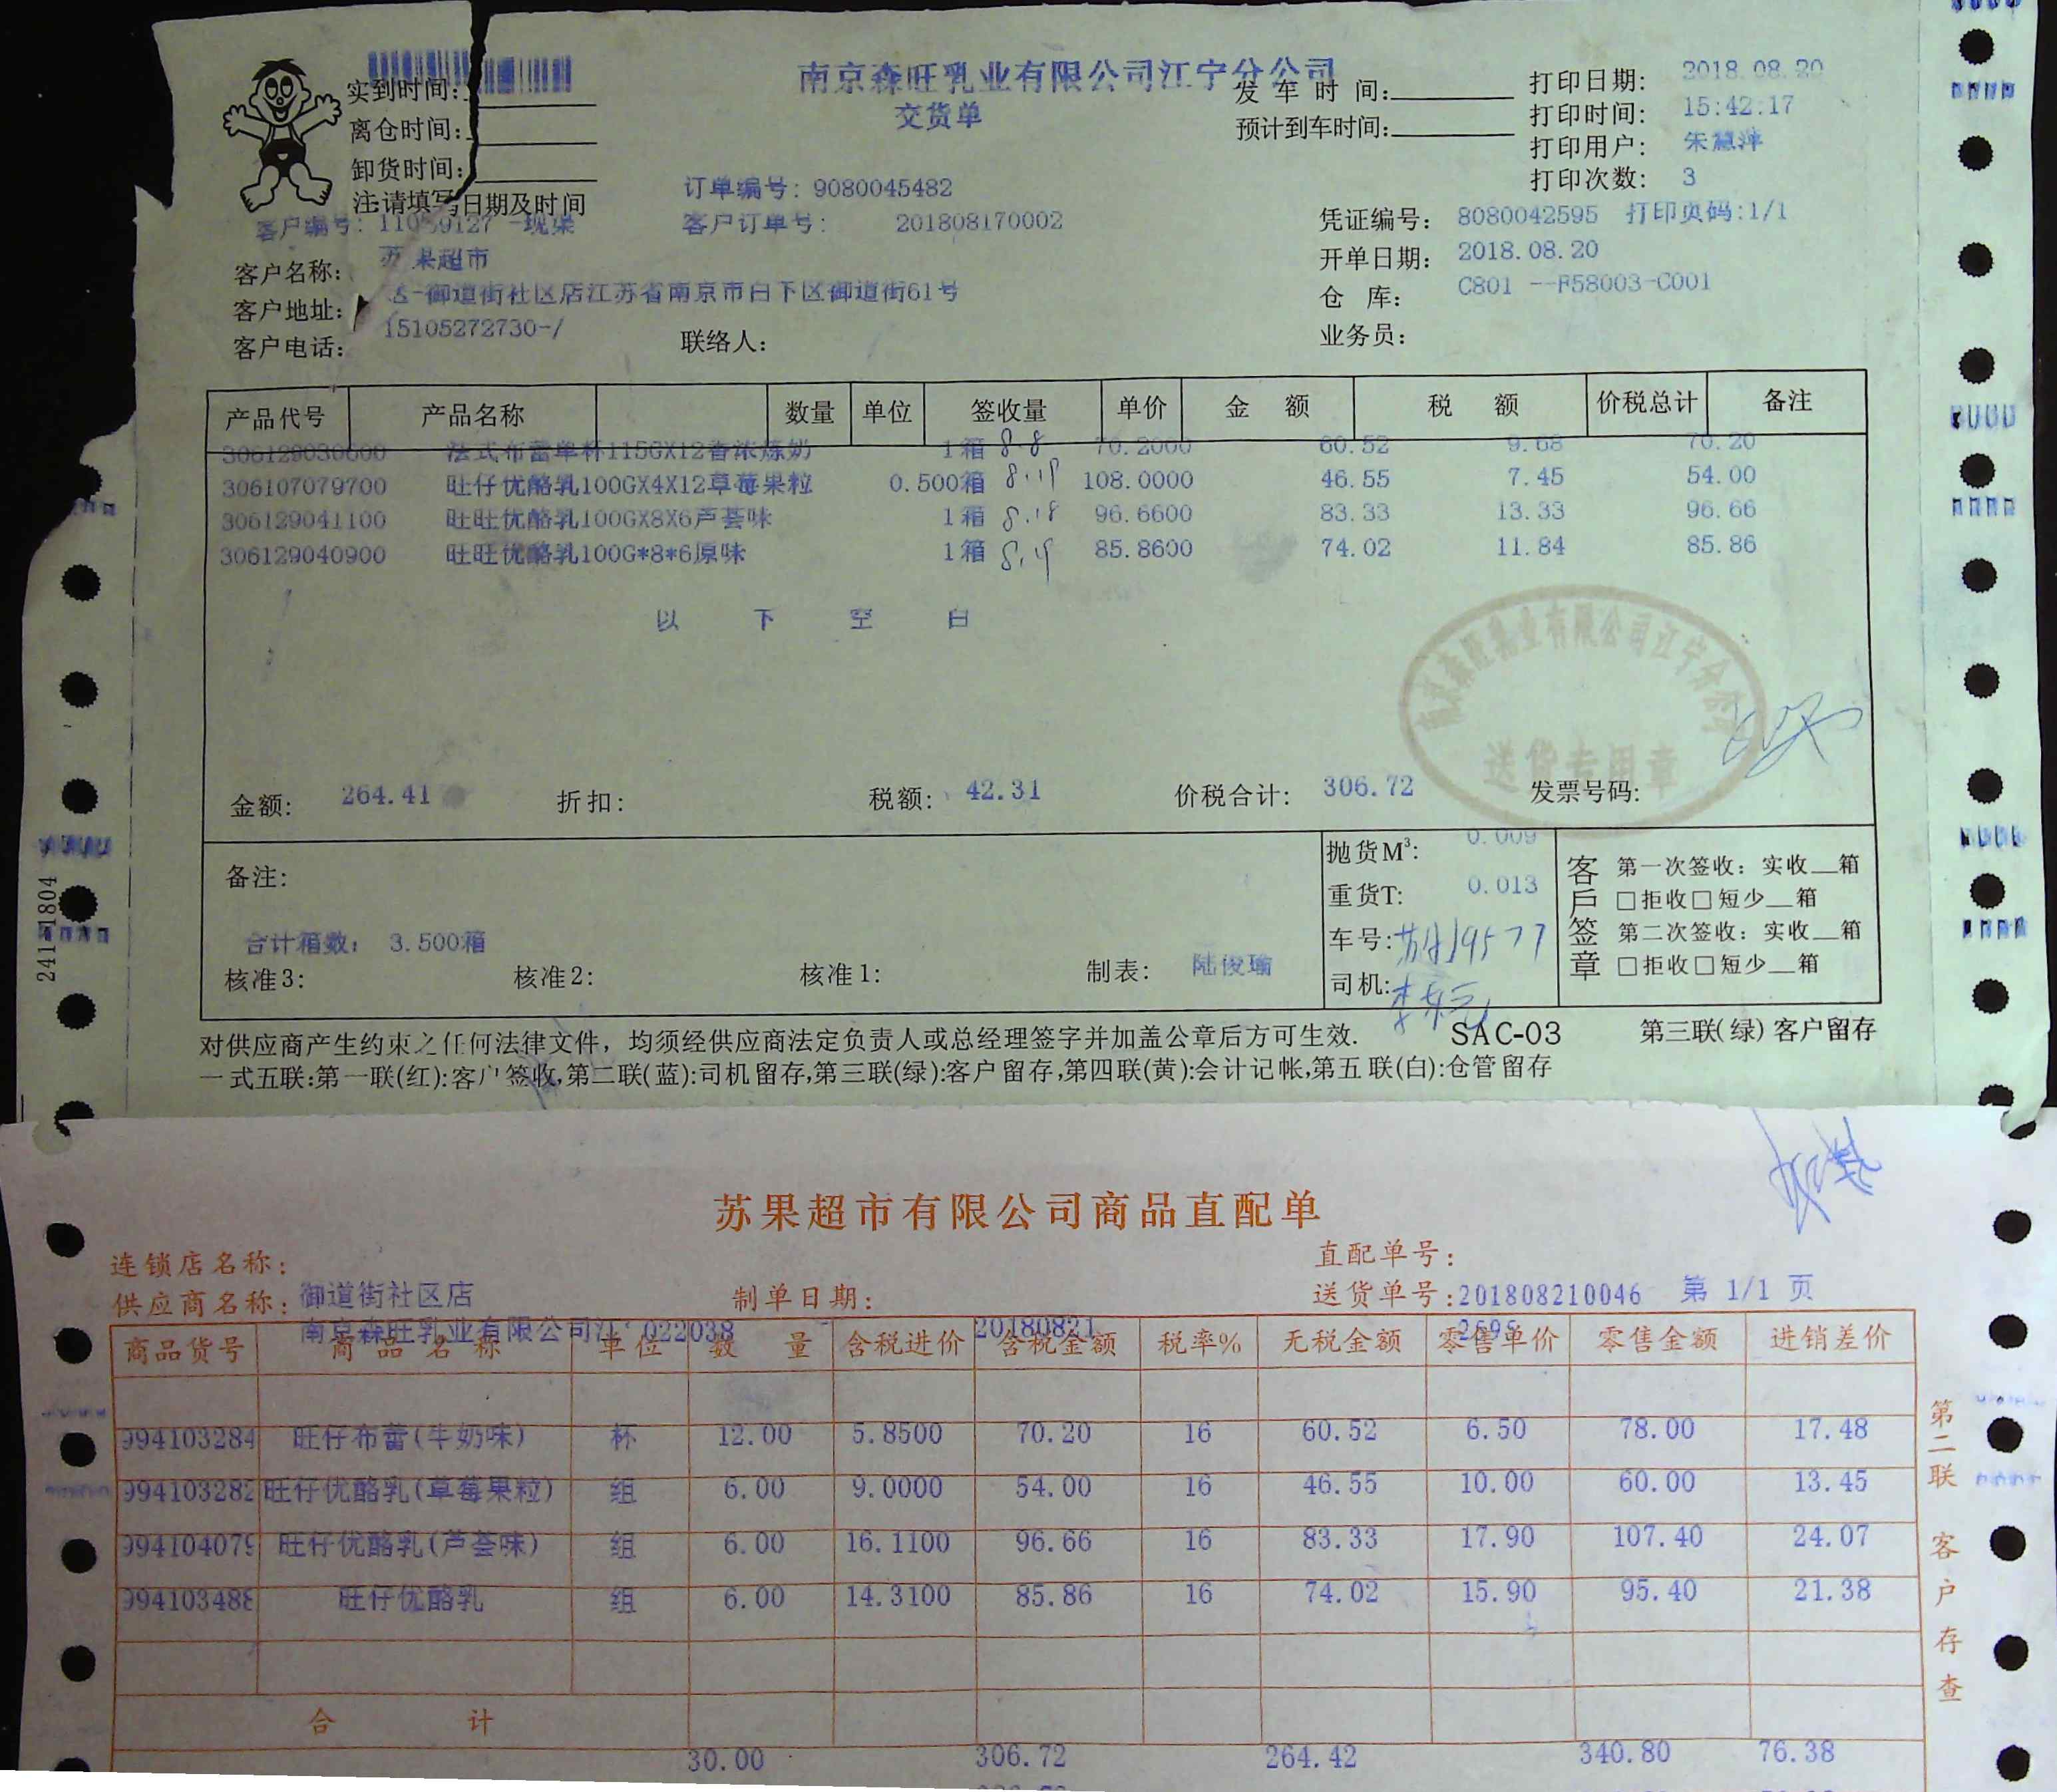 南京森旺乳业有限公司江宁分公司
交货单
实到时间:
离仓时间:
卸货时间:
注:请填写日期及时间
发车时间:
预计到车时间:
打印日期: 2018.08.20
打印时间: 15:42:17
打印用户: 朱慧萍
打印次数: 3
订单编号: 9080045482
客户编号: 11059127 -现渠
客户订单号: 201808170002
凭证编号: 8080042595 打印页码:1/1
客户名称: 苏果超市
开单日期: 2018.08.20
客户地址: -御道街社区店江苏省南京市白下区御道街61号
仓库: C801 --F58003-C001
客户电话: 15105272730-/
联络人:
业务员:
产品代号 产品名称 数量 单位 签收量 单价 金额 税额 价税总计 备注
306129030600 法式布蕾单杯115GX12香浓炼奶 1箱 8.8 70.2000 60.52 9.68 70.20
306107079700 旺仔优酪乳100GX4X12草莓果粒 0.500箱 8.19 108.0000 46.55 7.45 54.00
306129041100 旺旺优酪乳100GX8X6芦荟味 1箱 8.18 96.6600 83.33 13.33 96.66
306129040900 旺旺优酪乳100G*8*6原味 1箱 8.19 85.8600 74.02 11.84 85.86
以下空白
南京森旺乳业有限公司江宁分公司
送货专用章
金额: 264.41 折扣: 税额: 42.31 价税合计: 306.72 发票号码:
备注:
合计箱数: 3.500箱
核准3: 核准2: 核准1: 制表: 陆俊瑜
抛货M³: 0.009
重货T: 0.013
车号:
司机:
客户签章
第一次签收: 实收__箱
□拒收□短少__箱
第二次签收: 实收__箱
□拒收□短少__箱
对供应商产生约束之任何法律文件, 均须经供应商法定负责人或总经理签字并加盖公章后方可生效. SAC-03 第三联(绿)客户留存
一式五联:第一联(红):客户签收,第二联(蓝):司机留存,第三联(绿):客户留存,第四联(黄):会计记帐,第五联(白):仓管留存
241-1804
苏果超市有限公司商品直配单
连锁店名称: 御道街社区店
直配单号:
供应商名称: 南京森旺乳业有限公司江 022038
制单日期: 20180821
送货单号: 201808210046 第 1/1 页
2595
商品货号 商品名称 单位 数量 含税进价 含税金额 税率% 无税金额 零售单价 零售金额 进销差价
994103284 旺仔布蕾(牛奶味) 杯 12.00 5.8500 70.20 16 60.52 6.50 78.00 17.48
994103282 旺仔优酪乳(草莓果粒) 组 6.00 9.0000 54.00 16 46.55 10.00 60.00 13.45
994104079 旺仔优酪乳(芦荟味) 组 6.00 16.1100 96.66 16 83.33 17.90 107.40 24.07
994103488 旺仔优酪乳 组 6.00 14.3100 85.86 16 74.02 15.90 95.40 21.38
合计
30.00 306.72 264.42 340.80 76.38
第二联 客户存查